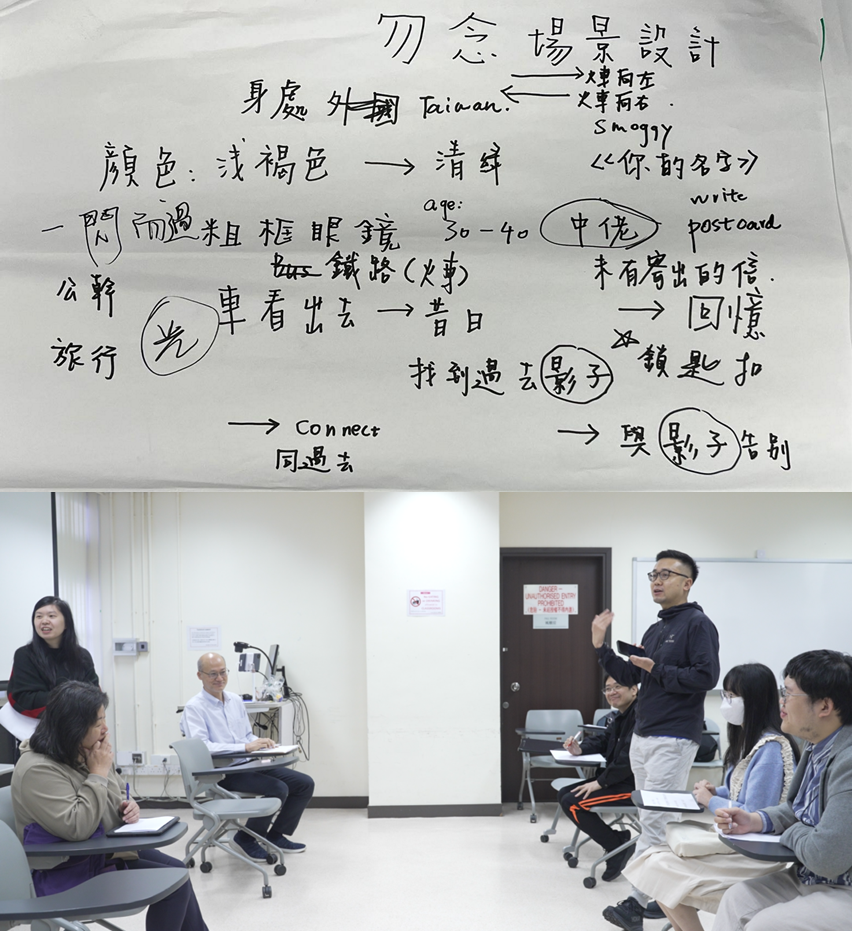 勿念 場景設計
火車向左
火車向右.
身處 外國 Taiwan.
Smoggy
顏色: 浅褐色 → 清綠
《你的名字》
一閃而過 粗框眼鏡
age:
30-40
中佬
write
postcard
鐵路(火車)
未有寄出的信.
公幹
旅行
光
車看出去 → 昔日
→ 回憶
鎖匙扣
找到過去影子
→ connect
同過去
→ 與影子告别
DANGER -
UNAUTHORISED ENTRY
PROHIBITED